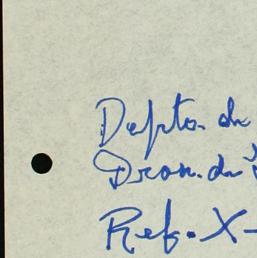 Depto. de
Dron. de
Ref. X-